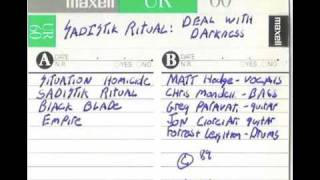 maxell UR 60
UR
60
SADISTIK RITUAL: DEAL WITH
DARKNESS
A DATE
N.R. YES NO
B DATE
N.R. YES NO
SITUATION HOMICIDE
SADISTIK RITUAL
BLACK BLADE
EMPIRE
MATT Hodge - VOCALS
Chris Mondell - BASS
Greg Paravati - guitar
JON Ciorciari guitar
Forrest - DRUMS
© 89